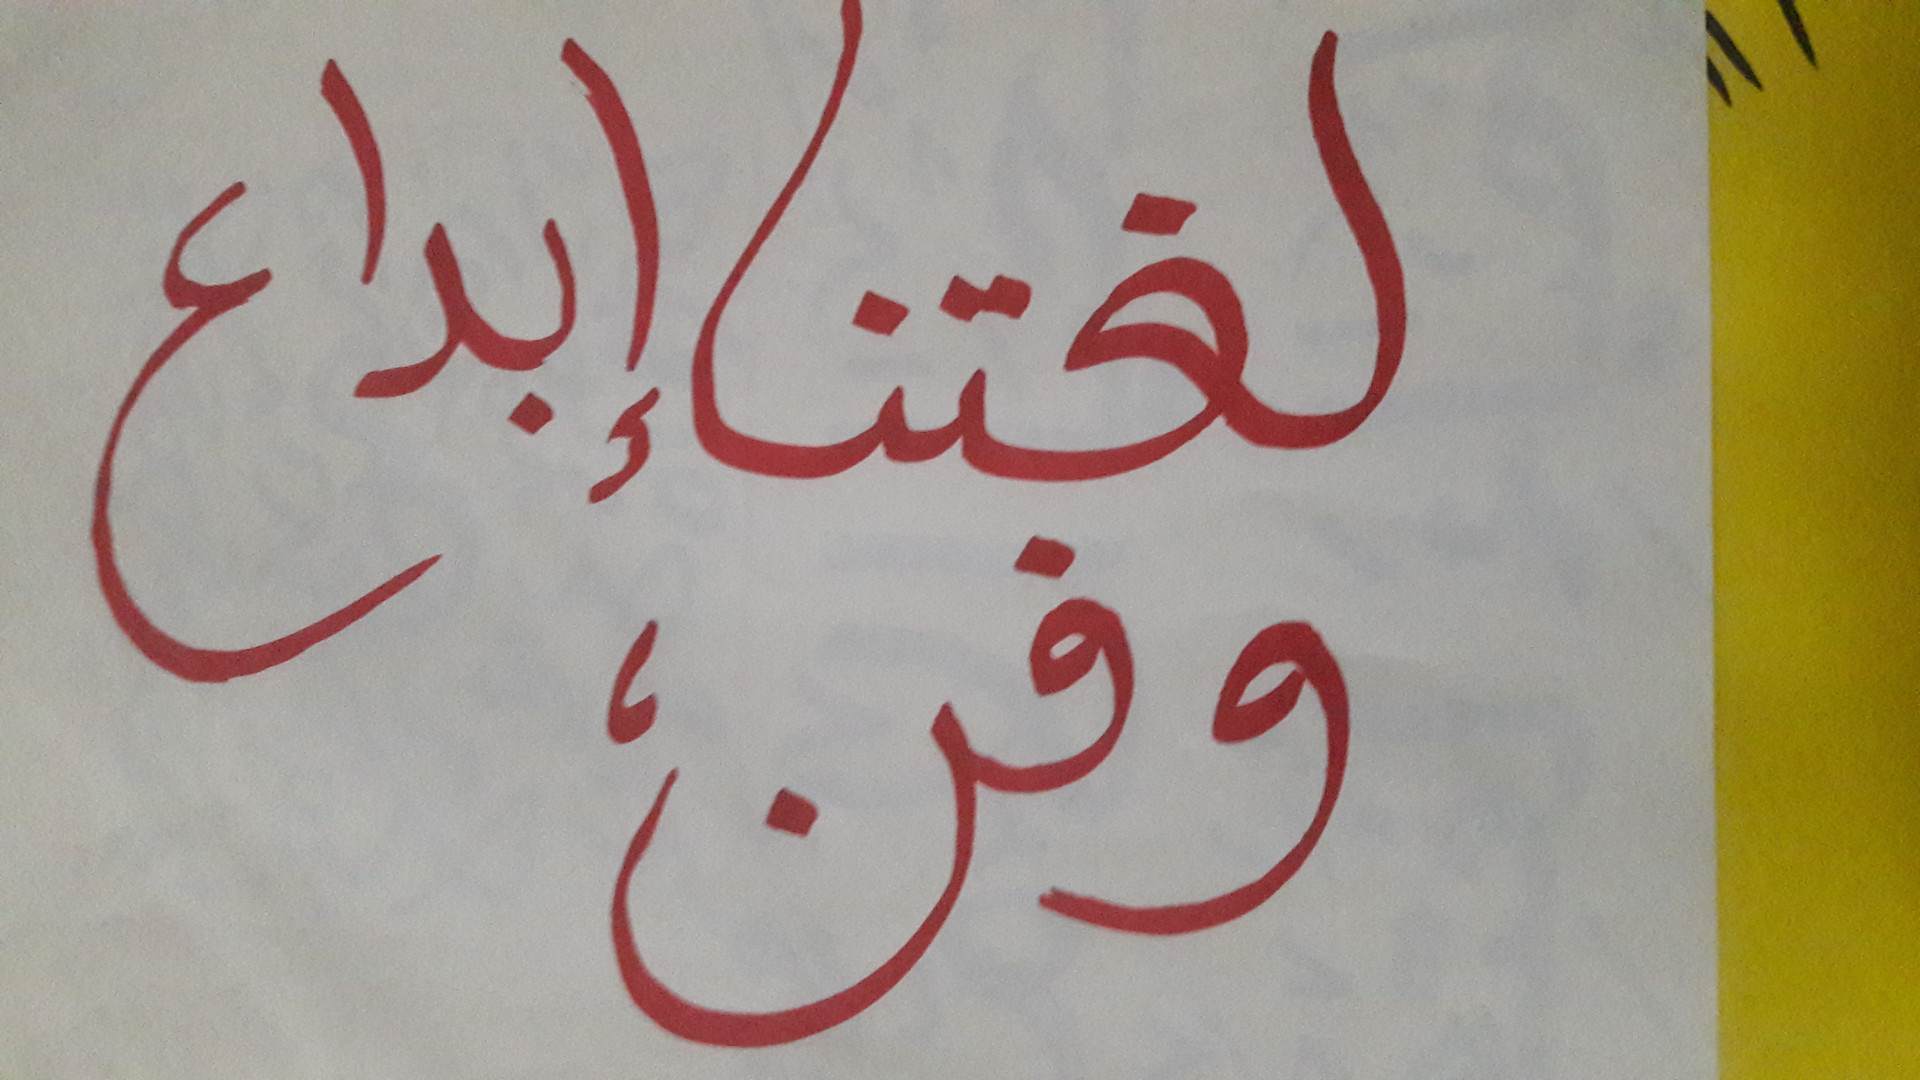 لغتنا إبداع
وفن،